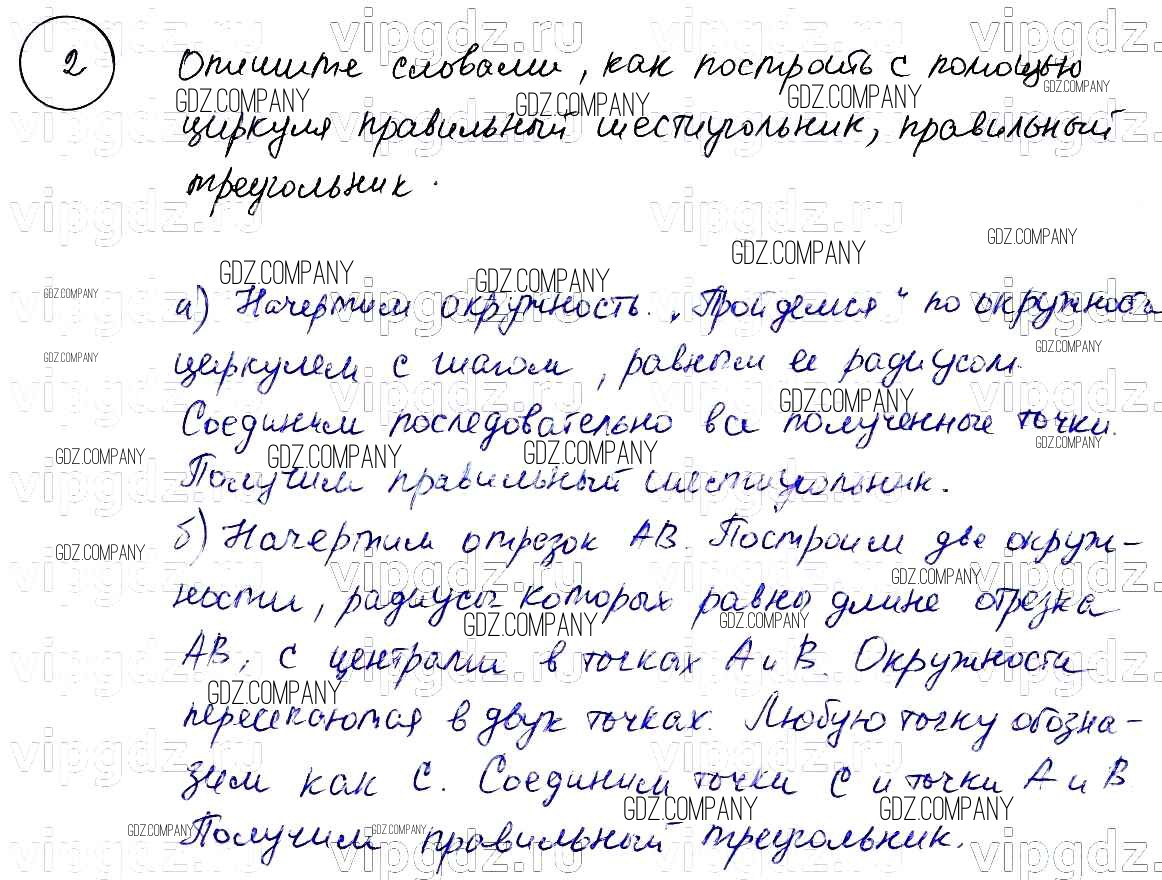 2 Опишите словами, как построить с помощью
циркуля правильный шестиугольник, правильный
треугольник.
а) Начертим окружность. „Пройдемся" по окружности
циркулем с шагом, равным ее радиусом.
Соединим последовательно все полученные точки.
Получим правильный шестиугольник.
б) Начертим отрезок AB. Построим две окруж-
ности, радиусы которых равны длине отрезка
AB, с центрами в точках A и B. Окружности
пересекаются в двух точках. Любую точку обозна-
чим как C. Соединим точки C и точки A и B
Получим правильный треугольник.